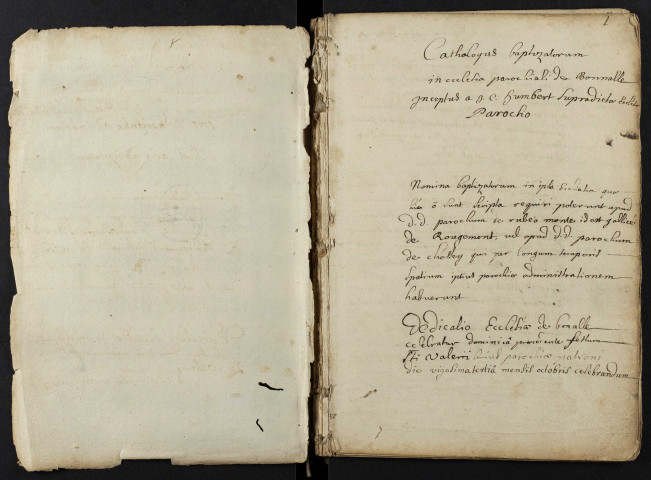 1
Cathologus baptizatorum
in ecclesia parochiali de Bonnalle
Inceptus a d. C. humbert supradictæ
Parocho
Nomina baptizatorum in ista ecclesia quæ
hic ō sunt scripta requiri poterunt apud
d.d. parochum de rubeo monte id est gallicè
de Rougemont, vel apud d.d. parochum
de chassey qui per longum temporis
spatium istius parochiæ administrationem
habuerunt
Dedicatio Ecclesiæ de bonalle
celebratur dominicâ præcedente festum
Sti Valerii huius parochiæ patroni
die vigesimatertiâ mensis octobris celebrandum